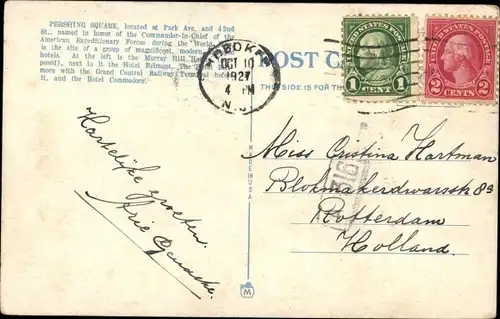 PERSHING SQUARE, located at Park Ave. and 42nd
St., named in honor of the Commander-in-Chief of the
American Expeditionary Forces during the World
is the site of a group of magnificent, modern
hotels. At the left is the Murray Hill
posed), next to it the Hotel Belmont. The
more with the Grand Central Railway Terminal
it, and the Hotel Commodore.
HOBOKEN
OCT 10
1927
4 PM
N.J.
POST CA
THIS SIDE IS FOR TH
UNITED STATES POSTAGE
1 CENT 1
UNITED STATES POSTAGE
2 CENTS 2
Hartelijke groeten.
Arie
Miss Cristina Hartman
Blokmakerdwarsstr 8a
Rotterdam
Holland.
M